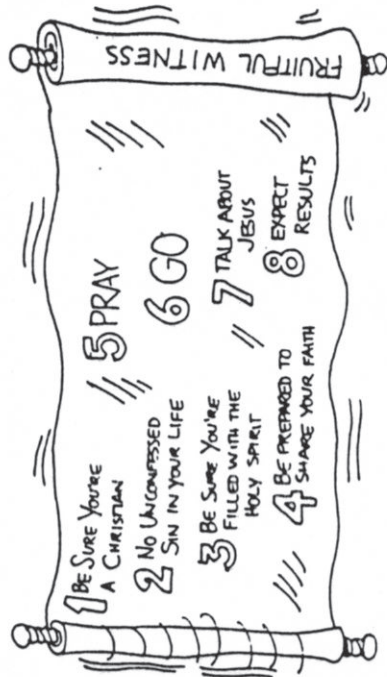 FRUITFUL WITNESS
1 BE SURE YOU'RE
A CHRISTIAN
2 NO UNCONFESSED
SIN IN YOUR LIFE
3 BE SURE YOU'RE
FILLED WITH THE
HOLY SPIRIT
4 BE PREPARED TO
SHARE YOUR FAITH
5 PRAY
6 GO
7 TALK ABOUT
JESUS
8 EXPECT
RESULTS